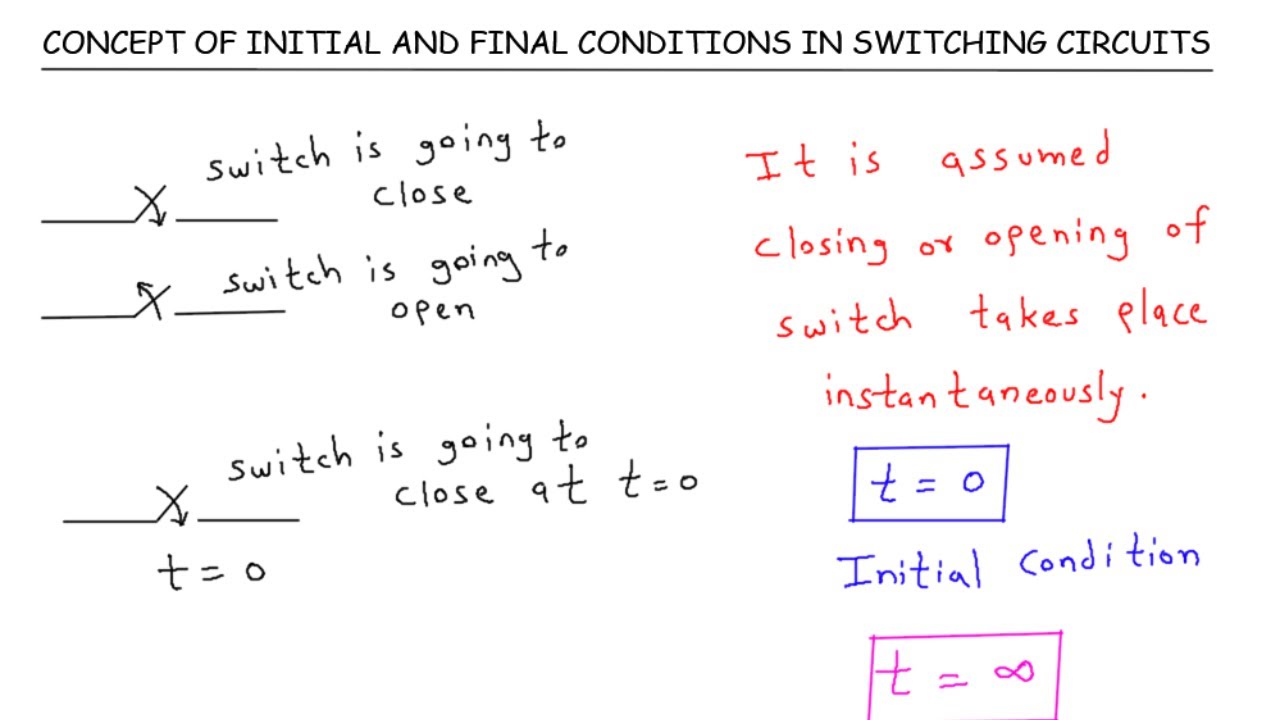 CONCEPT OF INITIAL AND FINAL CONDITIONS IN SWITCHING CIRCUITS
switch is going to
close
switch is going to
open
switch is going to
close at t=0
t = 0
It is assumed
closing or opening of
switch takes place
instantaneously.
t = 0
Initial Condition
t = ∞